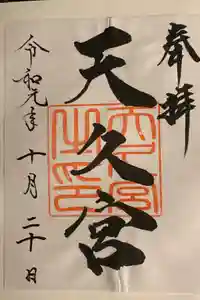 奉拝
天久宮
令和元年十月二十日